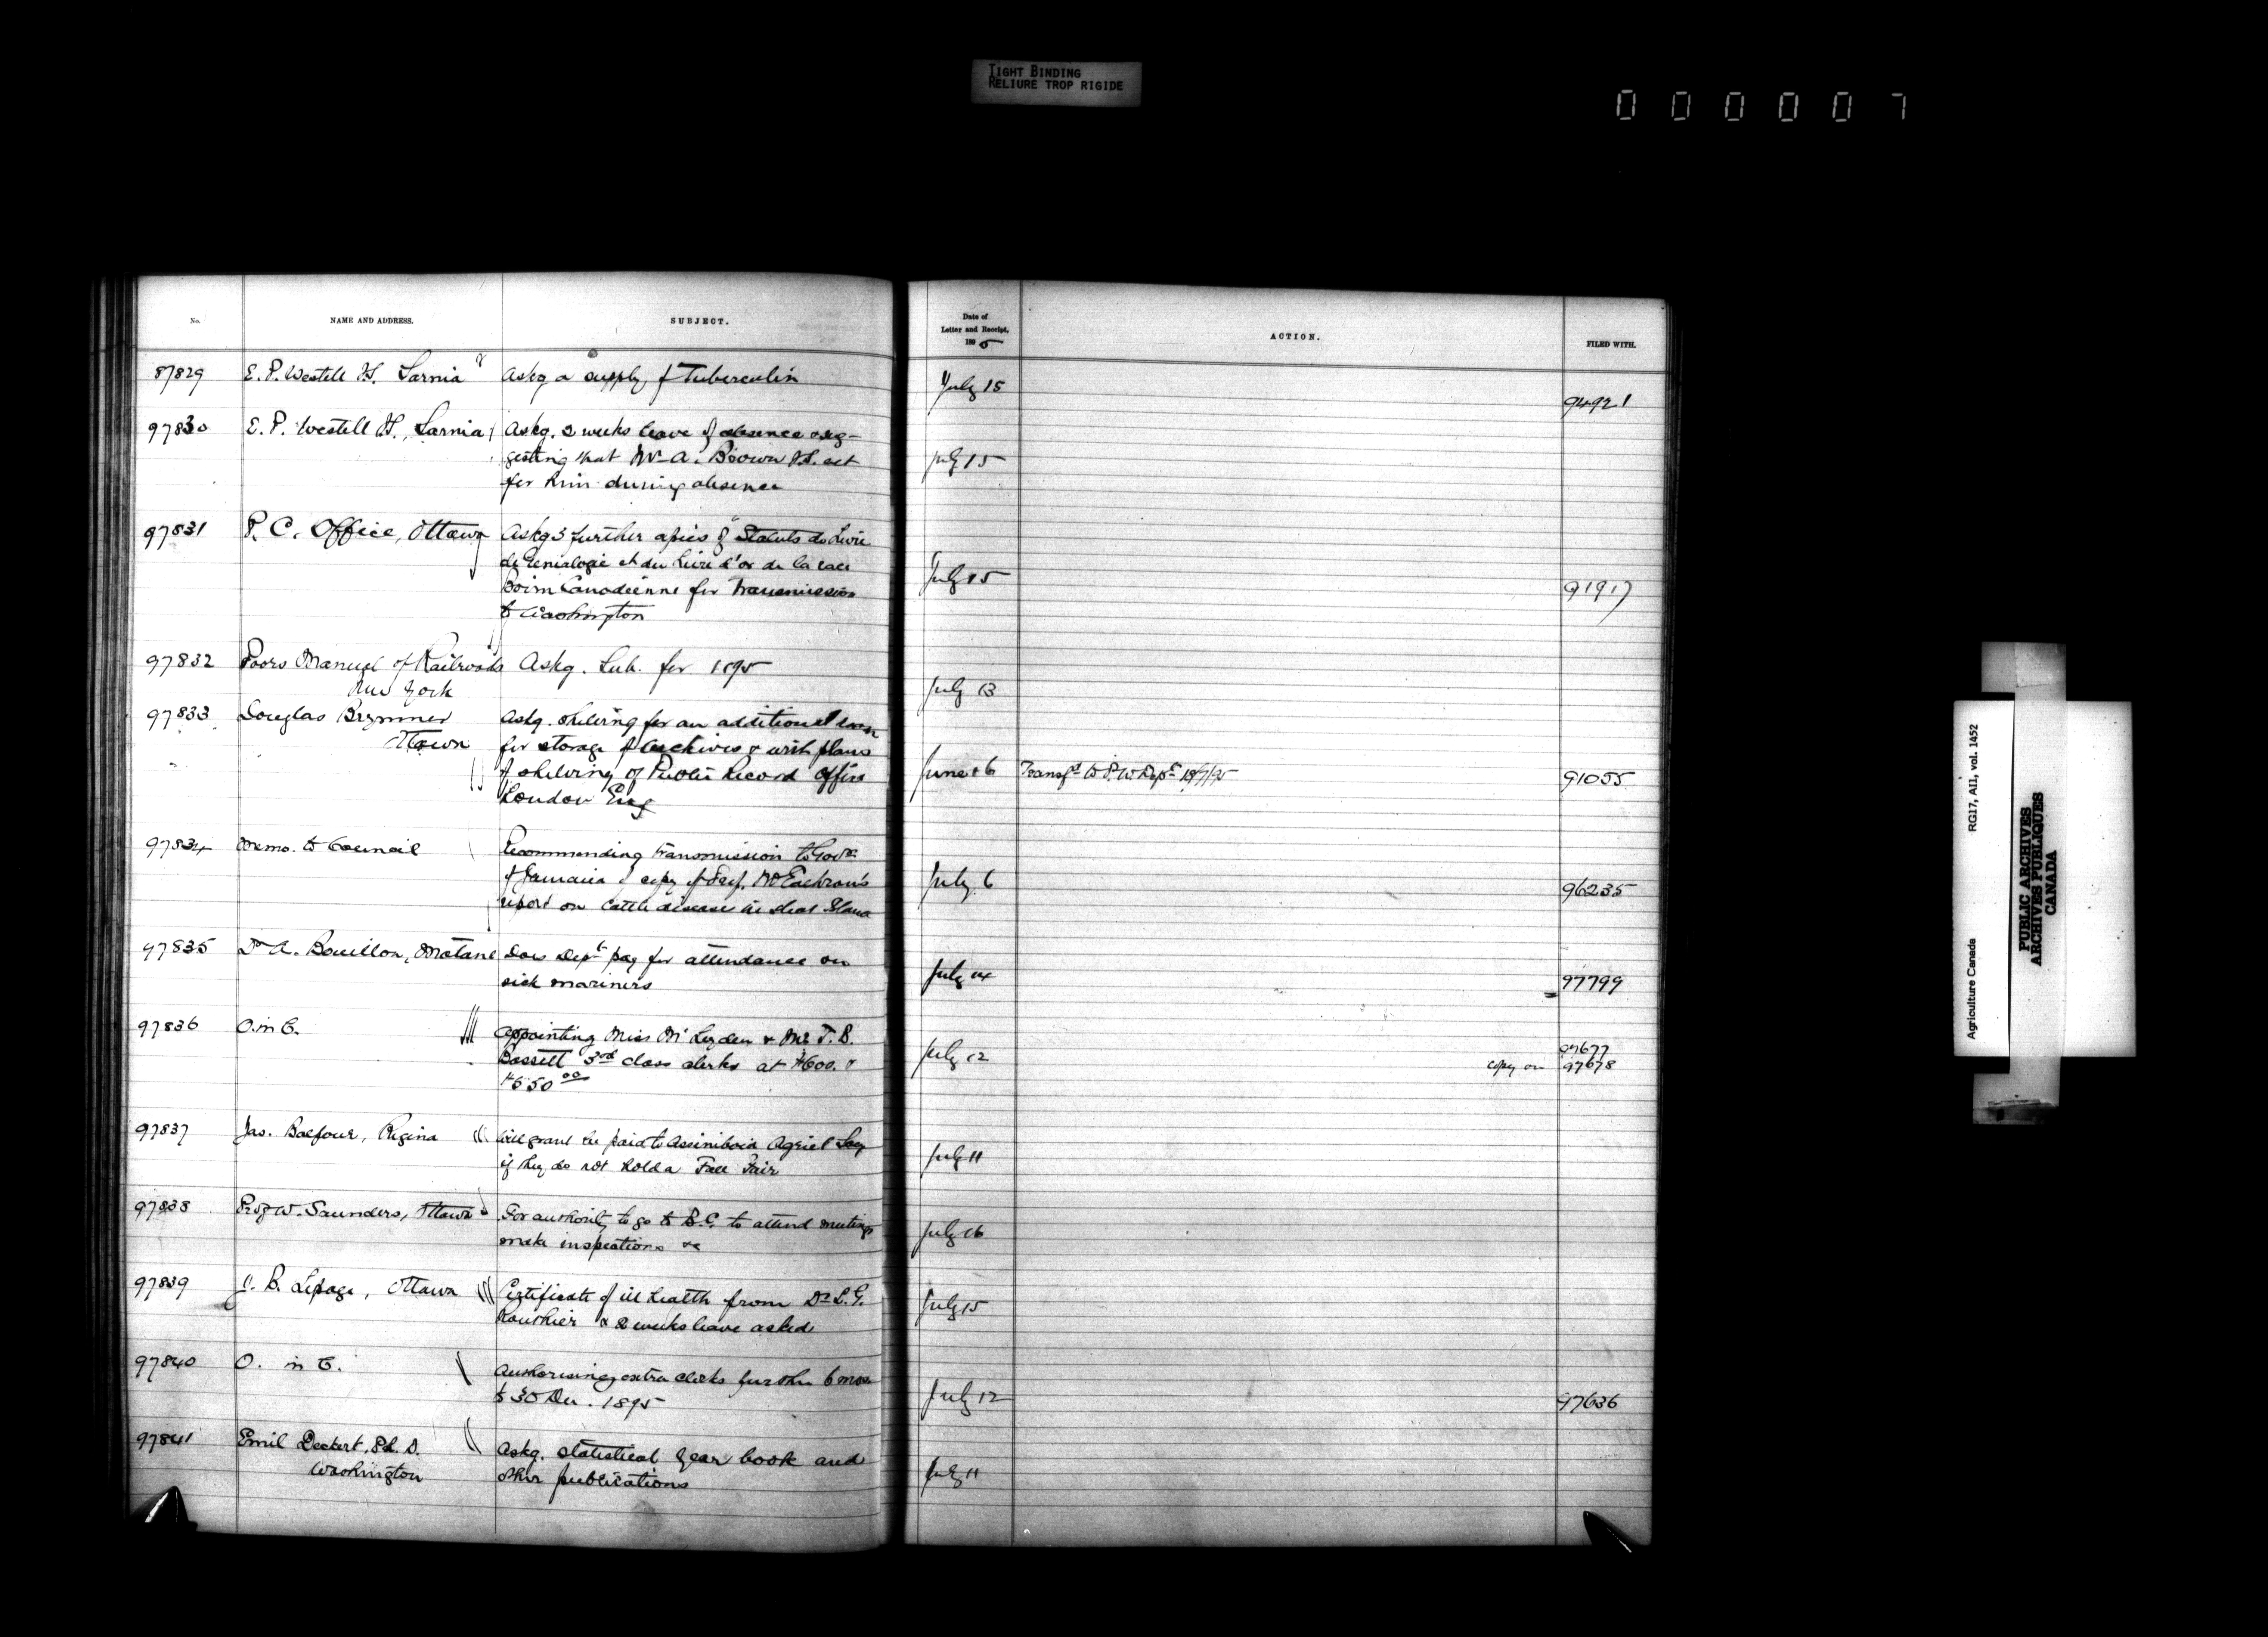 TIGHT BINDING
RELIURE TROP RIGIDE
0 0 0 0 0 7
No.
NAME AND ADDRESS.
SUBJECT.
Date of
Letter and Receipt,
1895
ACTION.
FILED WITH.
97829 E. P. Westell V.S. Sarnia Askg a supply of Tuberculin July 15 94921
97830 E. P. Westell V.S., Sarnia Askg. 2 weeks leave of absence & sug-
gesting that Mr A. Brown V.S. act July 15
for him during absence
97831 P. C. Office, Ottawa Askg 3 further copies of "Statuts du Livre
de Genialogie et du Livre d'or de la race July 15
Bovine Canadienne for transmission 91917
to Washington
97832 Poors Manual of Railroads Askg. Sub. for 1895
New York July 13
97833 Douglas Brymner Askg. shelving for an additional room
Ottawa for storage of archives & with plans
of shelving of Public Record Office June 26 Transfd to P. W. Dept 18/7/95 91055
London Eng
97834 Memo. to Council Recommending transmission to Govt
of Jamaica of copy of Prof. McEachran's July 6 96235
report on cattle disease in that Island
97835 Dr A. Bouillon, Matane Does Dept pay for attendance on
sick mariners July 14 97799
97836 O. in C. Appointing Miss McLeyden & Mr T. B.
Bassett 3rd class clerks at $600. & July 12 97677
copy on 97678
$550 00
97837 Jas. Balfour, Regina Will grant be paid to Assiniboia Agricl Socy
if they do not hold a Fall Fair July 11
97838 Prof W. Saunders, Ottawa For authority to go to B.C. to attend meetings
make inspections &c July 16
97839 J. B. Lepage, Ottawa Certificate of ill health from Dr L. G.
Routhier & 2 weeks leave asked July 15
97840 O. in C. Authorising extra clerks further 6 mos
to 30 Dec. 1895 July 12 97636
97841 Emil Deckert, Ph. D. Askg. statistical year book and
Washington other publications July 11
Agriculture Canada RG17, AII, vol. 1452
PUBLIC ARCHIVES
ARCHIVES PUBLIQUES
CANADA